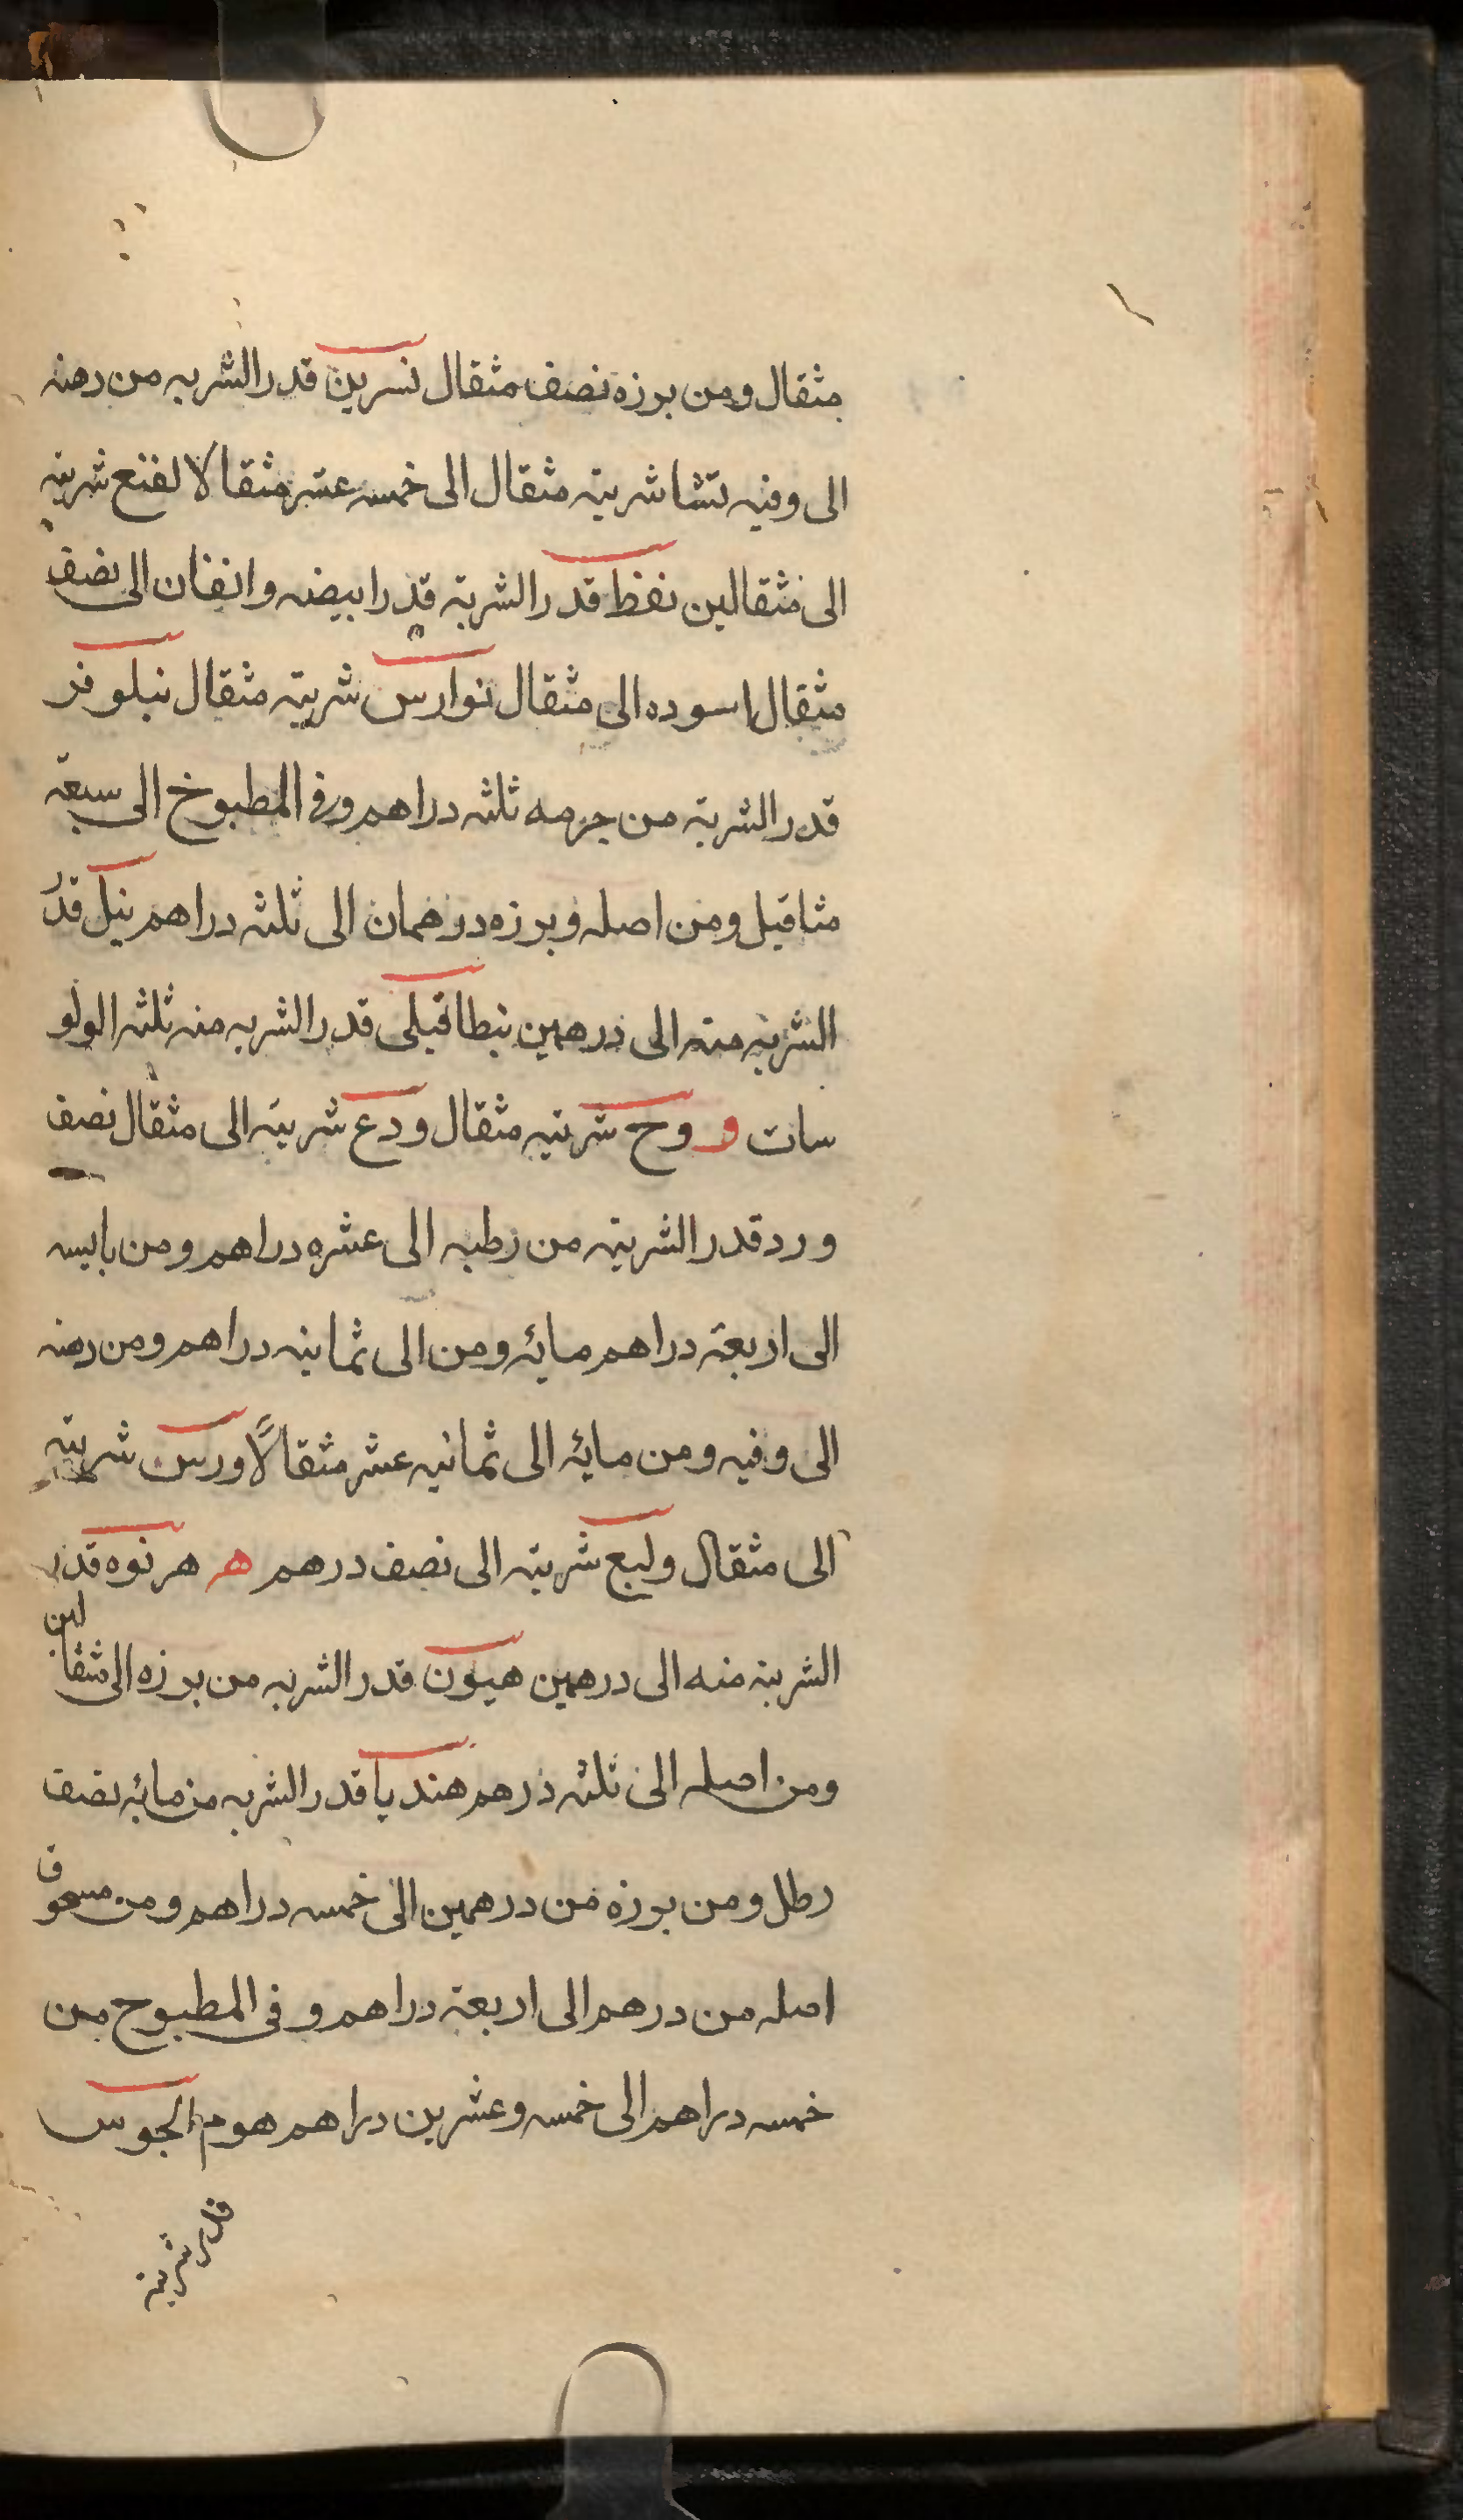 مثقال ومن برزه نصف مثقال نسرين قدر الشربه من دهنه
الى وفيه نشا شربته مثقال الى خمسه عشر مثقالا لفنع شربته
الى مثقالين نفظ قدر الشربة قدر ابيضه وانفان الى نصف
مثقال اسوده الى مثقال نوارس شربته مثقال نيلوفر
قدر الشربة من جرمه ثلثه دراهم وفى المطبوخ الى سبعة
مثاقيل ومن اصله وبرزه درهمان الى ثلثه دراهم نيل قدر
الشربه منه الى درهمين ينطافيلى قدر الشربه منه ثلثه الولو
سات و وج شربته مثقال ودع شربته الى مثقال نصف
ورد قدر الشربته من رطبه الى عشره دراهم ومن يابسه
الى اربعة دراهم مائه ومن الى ثمانيه دراهم ومن دهنه
الى وفيه ومن مائه الى ثمانيه عشر مثقالاً ورس شربته
الى مثقال ولبع شربته الى نصف درهم هر هرنوه قدر
الشربة منه الى درهمين هيون قدر الشربه من برزه الى مثقالين
ومن اصله الى ثلثه درهم هنديا قدر الشربه من مائه نصف
رطل ومن برزه من درهمين الى خمسه دراهم ومن مسعوق
اصله من درهم الى اربعة دراهم وفى المطبوح من
خمسه دراهم الى خمسه وعشرين دراهم هوم الجوس
قدر شربة